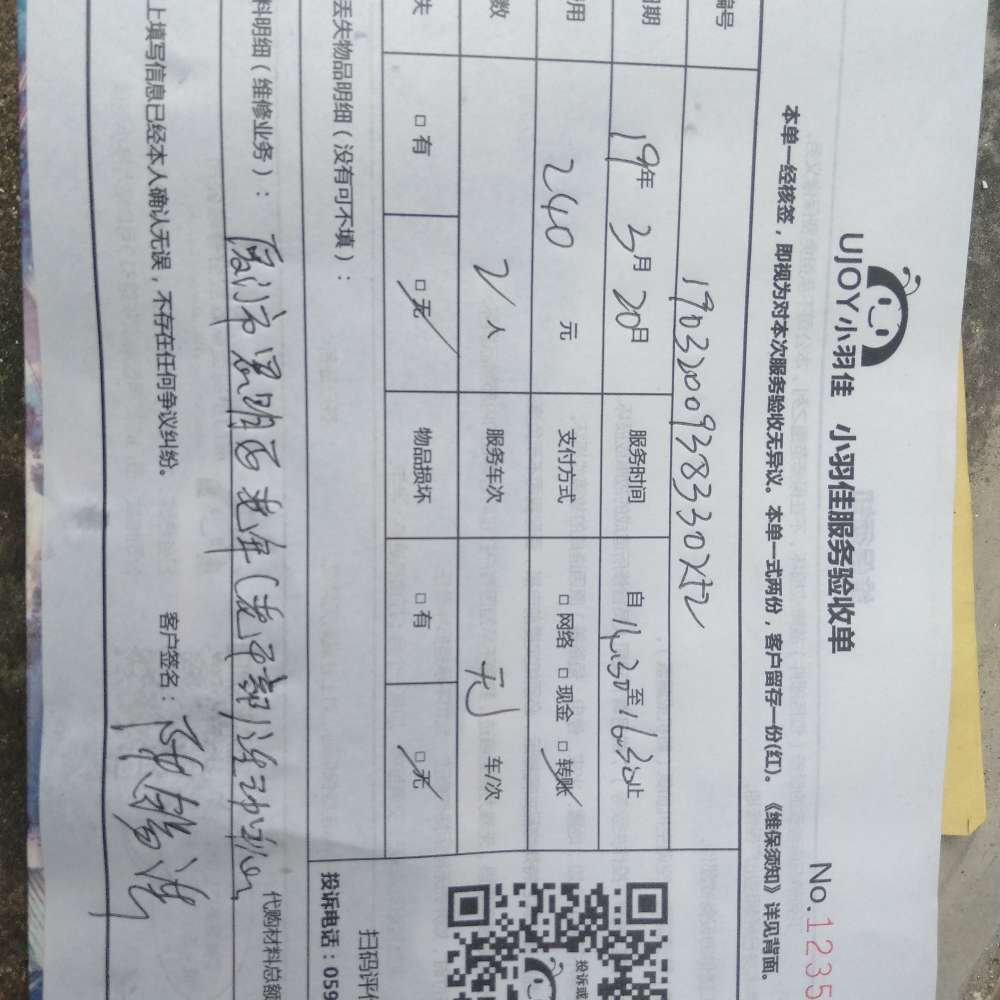 UJOY小羽佳 小羽佳服务验收单
No.1235
本单一经核签，即视为对本次服务验收无异议。本单一式两份，客户留存一份(红)。《维保须知》详见背面。
编号 190320093833302
日期 19年3月20日 服务时间 自14:30至16:30止
用 240 元 支付方式 □网络 □现金 □转账
数 2人 服务车次 无 车/次
失 □有 □无 物品损坏 □有 □无
丢失物品明细（没有可不填）：
料明细（维修业务）：
代购材料总额
上填写信息已经本人确认无误，不存在任何争议纠纷。 客户签名：
投诉或
扫码评价
投诉电话：059